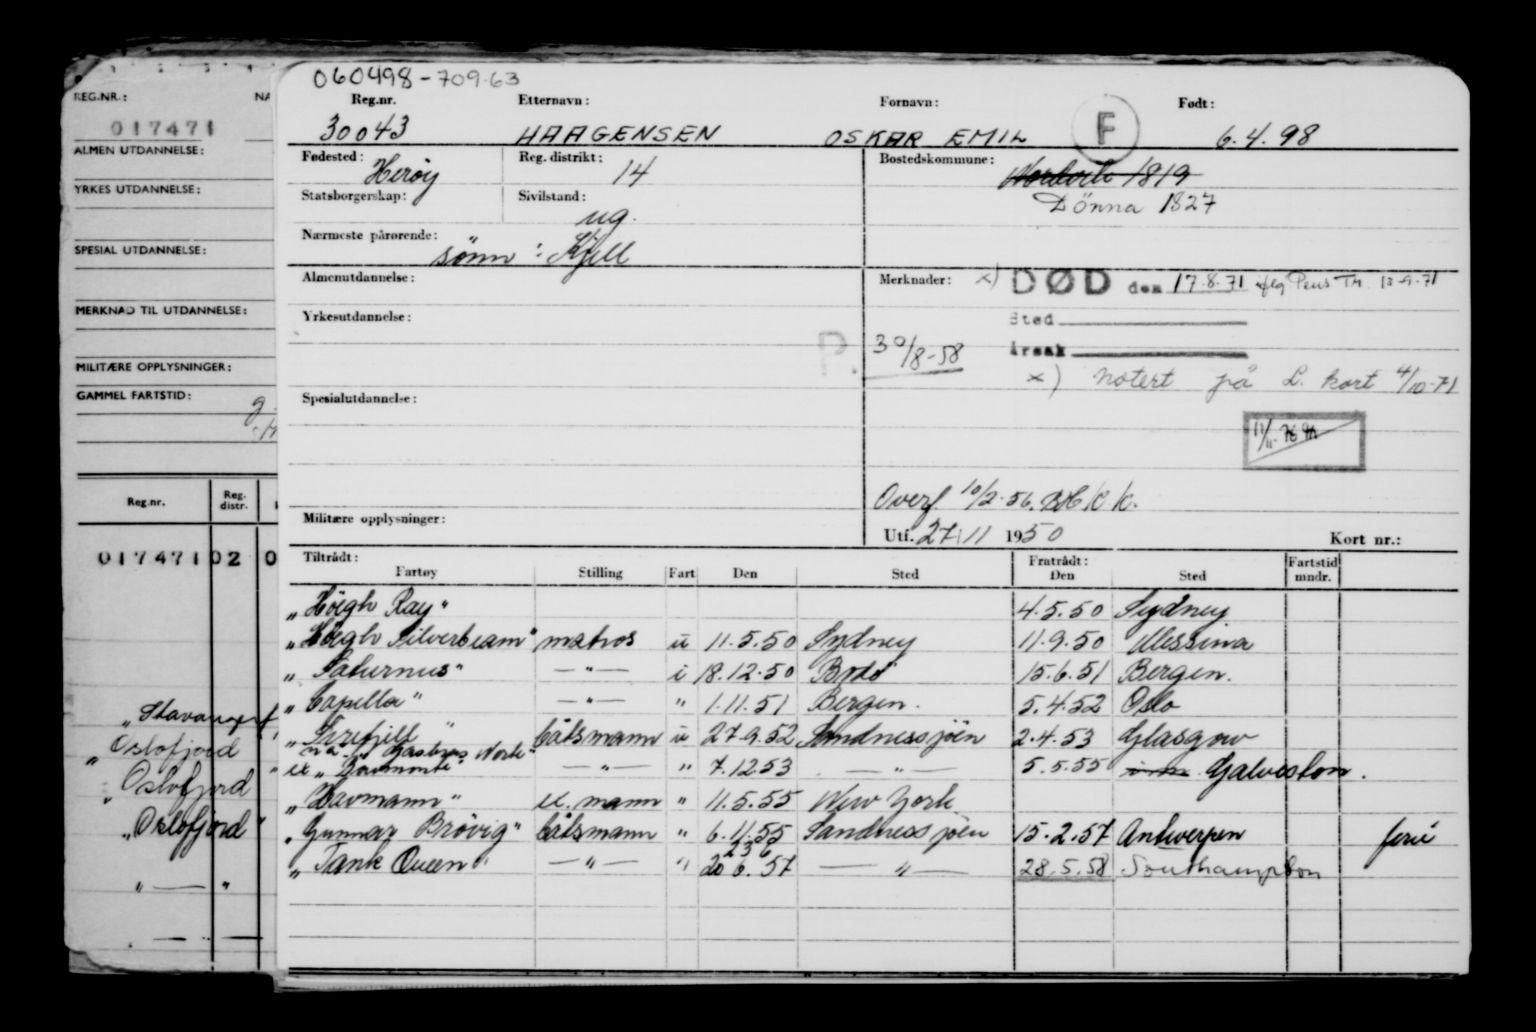 REG.NR.: NA
017471
ALMEN UTDANNELSE:
YRKES UTDANNELSE:
SPESIAL UTDANNELSE:
MERKNAD TIL UTDANNELSE:
MILITÆRE OPPLYSNINGER:
GAMMEL FARTSTID: g.
Reg.nr. Reg. distr.
017471 02 0
"Stavangerf
"Oslofjord "
"Oslofjord "
"Oslofjord "
" — "
060498-709.63
Reg.nr. Etternavn: Fornavn: Født:
30043 HAAGENSEN OSKAR EMIL F 6.4.98
Fødested: Herøy Reg. distrikt: 14 Bostedskommune: 1819
Dönna 1827
Statsborgerskap: Sivilstand: ug.
Nærmeste pårørende: sønn: Kjell
Almenutdannelse: Merknader: x) DØD den 17.8.71 iflg Pens Tr. 13-9-71
Yrkesutdannelse: Sted
P. 30/8-58 Årsak
x) notert på L. kort 4/10-71
Spesialutdannelse:
Overf 10/2-56.
Militære opplysninger: Utf. 27/11 1950 Kort nr.:
Tiltrådt: Fratrådt:
Fartøy Stilling Fart Den Sted Den Sted Fartstid mndr.
"Höegh Ray" 4.5.50 Sydney
"Höegh Silverbeam" matros u 11.5.50 Sydney 11.9.50 Messina
"Saturnus" — " — i 18.12.50 Bodö 15.6.51 Bergen.
"Capella" — " — " 1.11.51 Bergen. 5.4.52 Oslo
"Sirefjell" båtsmann u 27.9.52 Sandnessjöen 2.4.53 Glasgow
ex " — " — " 7.12.53 — " — 5.5.55 Galveston.
"Havmann" ex. mann " 11.5.55 New York
"Gunnar Brövig" båtsmann " 6.11.55 Sandnessjöen 15.2.57 Antwerpen ferie
23 6
"Tank Queen" — " — " 20 6.57 — " — 28.5.58 Southampton